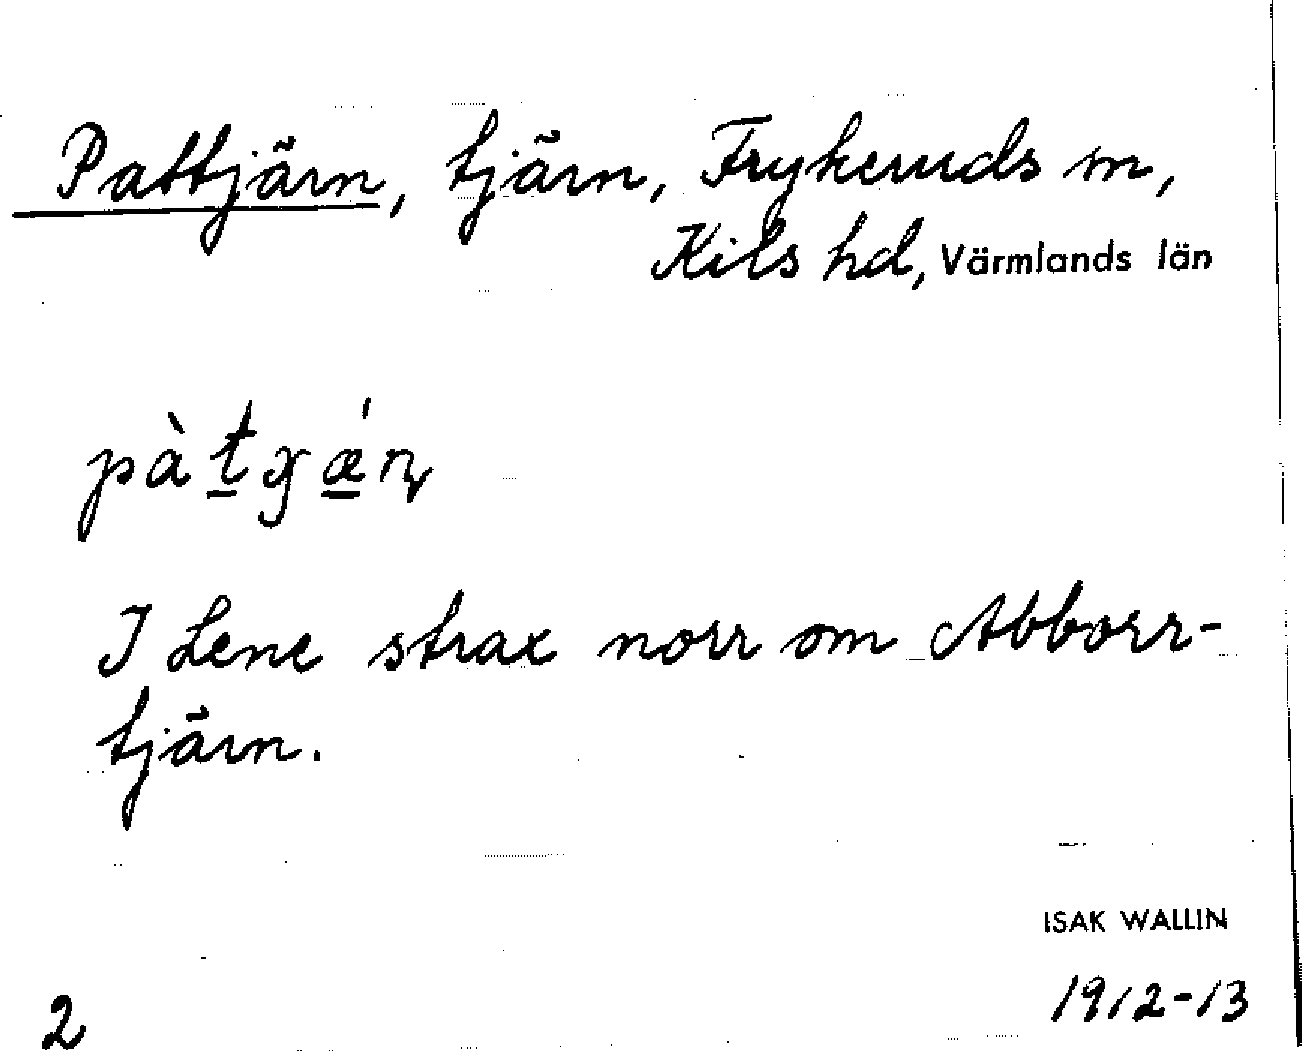 Pattjärn, tjärn, Frykeruds sn,
Kils hd, Värmlands län
pàt̲ɣǽ̲ɳ
I Lene strax norr om Abborr-
tjärn.
ISAK WALLIN
1912-13
2